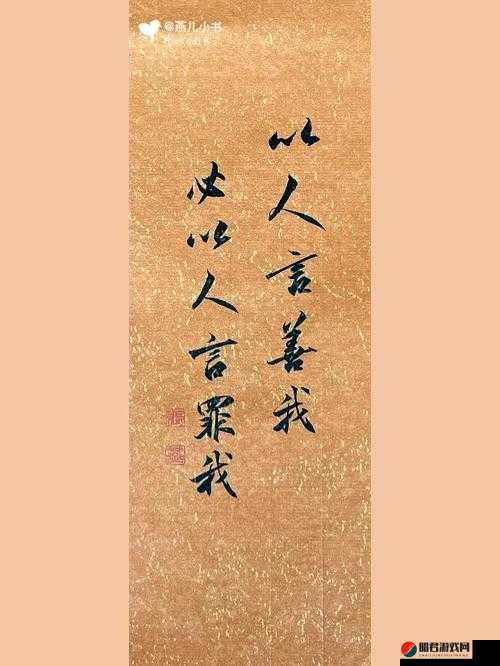 @燕儿小书
以人言善我
必以人言罪我
昭君游戏网